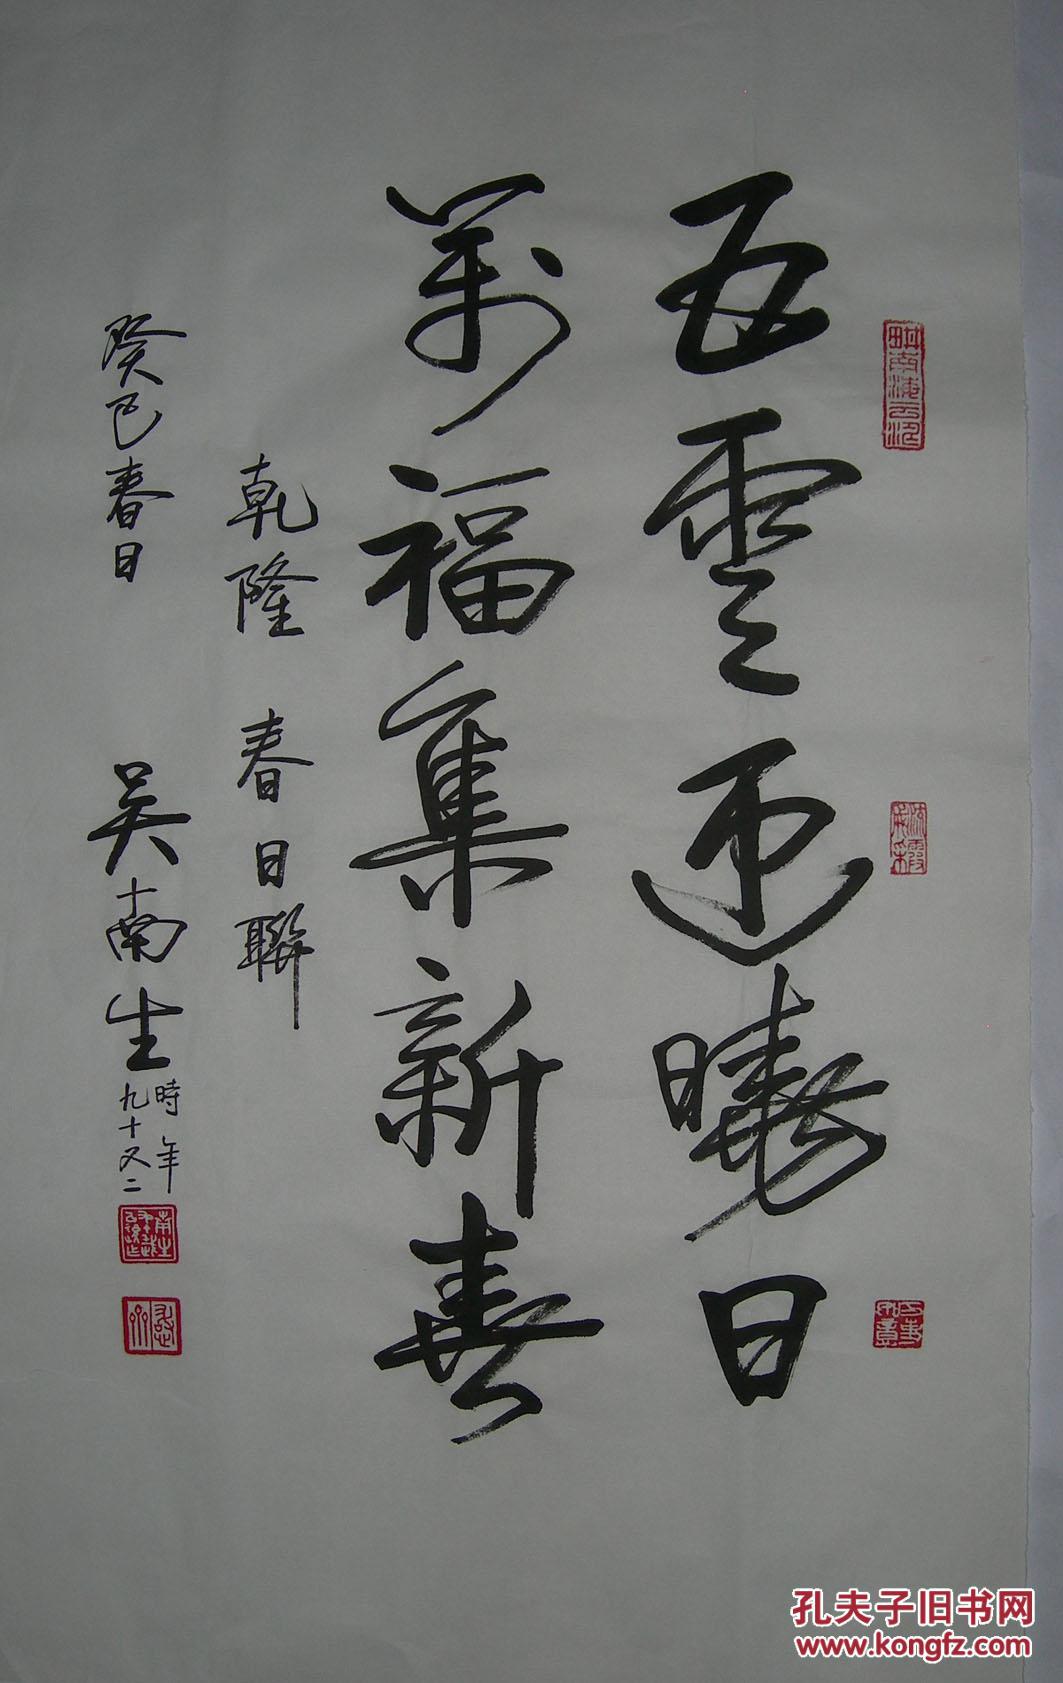 五雲迎曉日
萬福集新春
乾隆 春日聯
癸巳春日 吴南生 時年九十又二
万事如意
孔夫子旧书网
www.kongfz.com